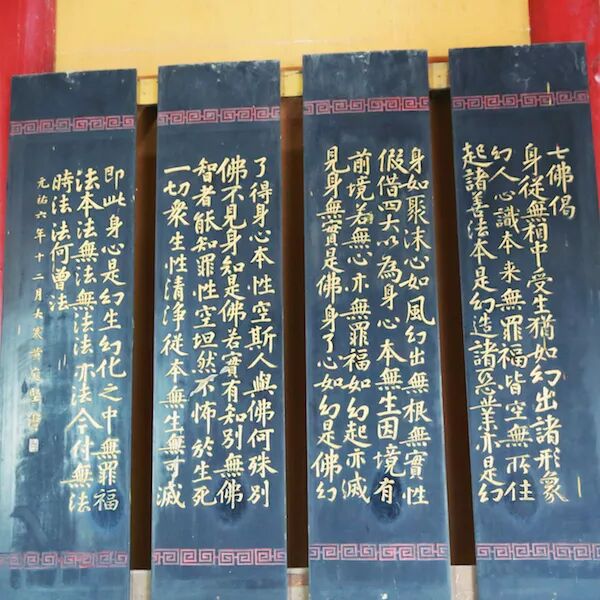 七佛偈
身從無相中受生猶如幻出諸形象
幻人心識本来無罪福皆空無所住
起諸善法本是幻造諸惡業亦是幻
身如聚沫心如風幻出無根無實性
假借四大以為身心本無生因境有
前境若無心亦無罪福如幻起亦滅
見身無實是佛身了心如幻是佛幻
了得身心本性空斯人與佛何殊別
佛不見身知是佛若實有知別無佛
智者能知罪性空坦然不怖於生死
一切衆生性清淨從本無生無可滅
即此身心是幻生幻化之中無罪福
法本法無法無法法亦法今付無法
時法法何曾法
元祐六年十二月大寒黃庭堅書